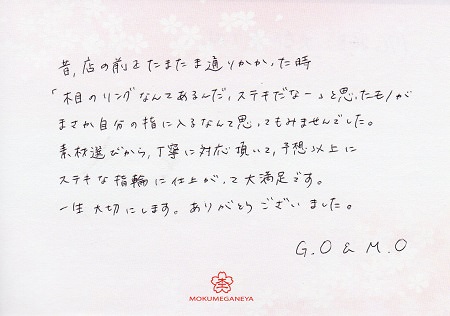 昔、店の前をたまたま通りかかった時
「木目のリングなんてあるんだ、ステキだなー」と思ったモノが
まさか自分の指に入るなんて思ってもみませんでした。
素材選びから、丁寧に対応頂いて、予想以上に
ステキな指輪に仕上がって大満足です。
一生大切にします。ありがとうございました。
G.O & M.O
MOKUMEGANEYA